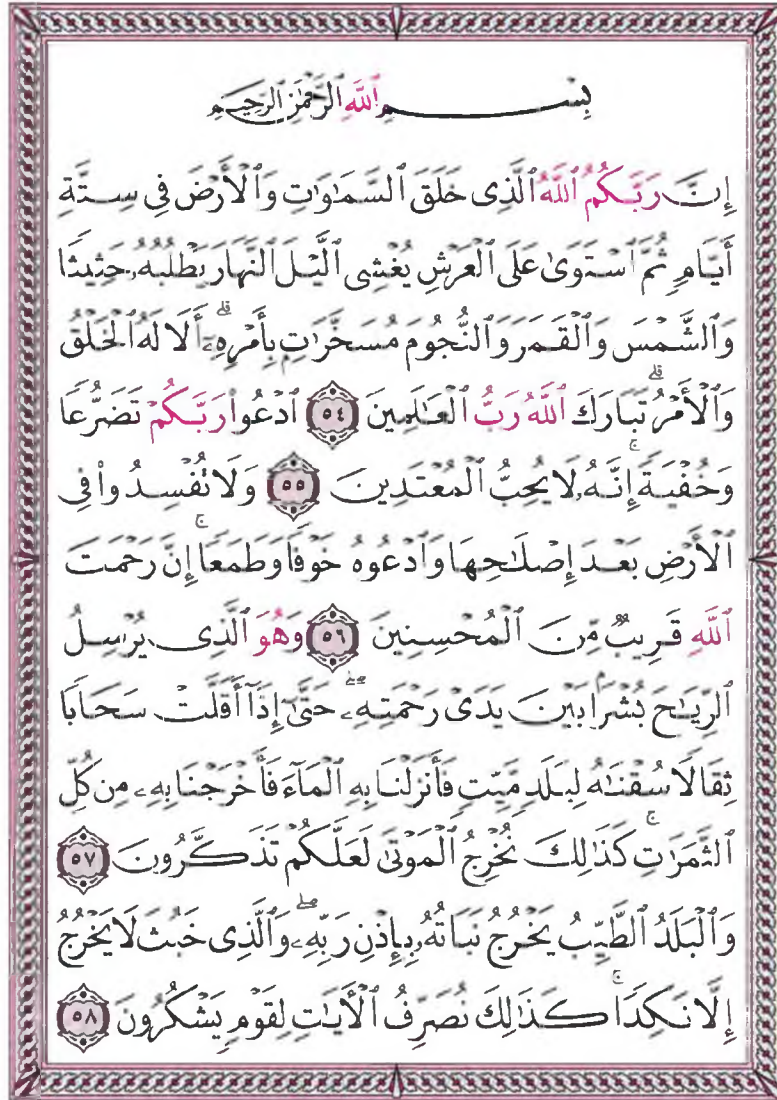 بِسْمِ ٱللَّهِ ٱلرَّحْمَٰنِ ٱلرَّحِيمِ
إِنَّ رَبَّكُمُ ٱللَّهُ ٱلَّذِى خَلَقَ ٱلسَّمَٰوَٰتِ وَٱلْأَرْضَ فِى سِتَّةِ
أَيَّامٍ ثُمَّ ٱسْتَوَىٰ عَلَى ٱلْعَرْشِ يُغْشِى ٱلَّيْلَ ٱلنَّهَارَ يَطْلُبُهُۥ حَثِيثًا
وَٱلشَّمْسَ وَٱلْقَمَرَ وَٱلنُّجُومَ مُسَخَّرَٰتٍۭ بِأَمْرِهِۦٓ ۗ أَلَا لَهُ ٱلْخَلْقُ
وَٱلْأَمْرُ ۗ تَبَارَكَ ٱللَّهُ رَبُّ ٱلْعَٰلَمِينَ ٥٤ ٱدْعُوا۟ رَبَّكُمْ تَضَرُّعًا
وَخُفْيَةً ۚ إِنَّهُۥ لَا يُحِبُّ ٱلْمُعْتَدِينَ ٥٥ وَلَا تُفْسِدُوا۟ فِى
ٱلْأَرْضِ بَعْدَ إِصْلَٰحِهَا وَٱدْعُوهُ خَوْفًا وَطَمَعًا ۚ إِنَّ رَحْمَتَ
ٱللَّهِ قَرِيبٌ مِّنَ ٱلْمُحْسِنِينَ ٥٦ وَهُوَ ٱلَّذِى يُرْسِلُ
ٱلرِّيَٰحَ بُشْرًۢا بَيْنَ يَدَىْ رَحْمَتِهِۦ ۖ حَتَّىٰٓ إِذَآ أَقَلَّتْ سَحَابًا
ثِقَالًا سُقْنَٰهُ لِبَلَدٍ مَّيِّتٍ فَأَنزَلْنَا بِهِ ٱلْمَآءَ فَأَخْرَجْنَا بِهِۦ مِن كُلِّ
ٱلثَّمَرَٰتِ ۚ كَذَٰلِكَ نُخْرِجُ ٱلْمَوْتَىٰ لَعَلَّكُمْ تَذَكَّرُونَ ٥٧
وَٱلْبَلَدُ ٱلطَّيِّبُ يَخْرُجُ نَبَاتُهُۥ بِإِذْنِ رَبِّهِۦ ۖ وَٱلَّذِى خَبُثَ لَا يَخْرُجُ
إِلَّا نَكِدًا ۚ كَذَٰلِكَ نُصَرِّفُ ٱلْأَيَٰتِ لِقَوْمٍ يَشْكُرُونَ ٥٨